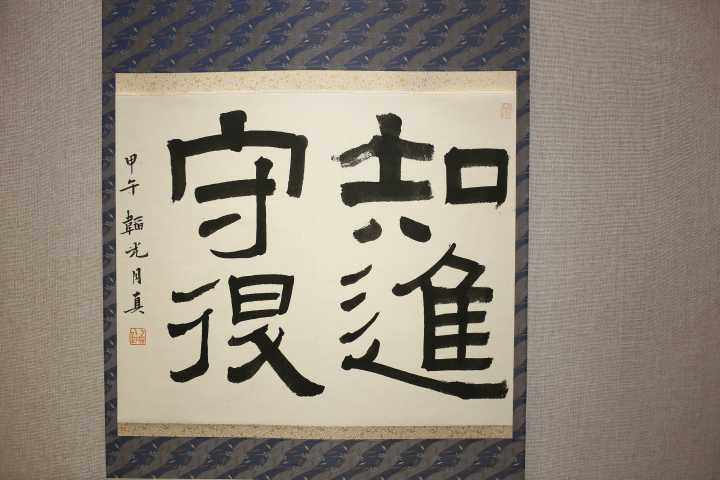 知進
守退
甲午 韜光月真